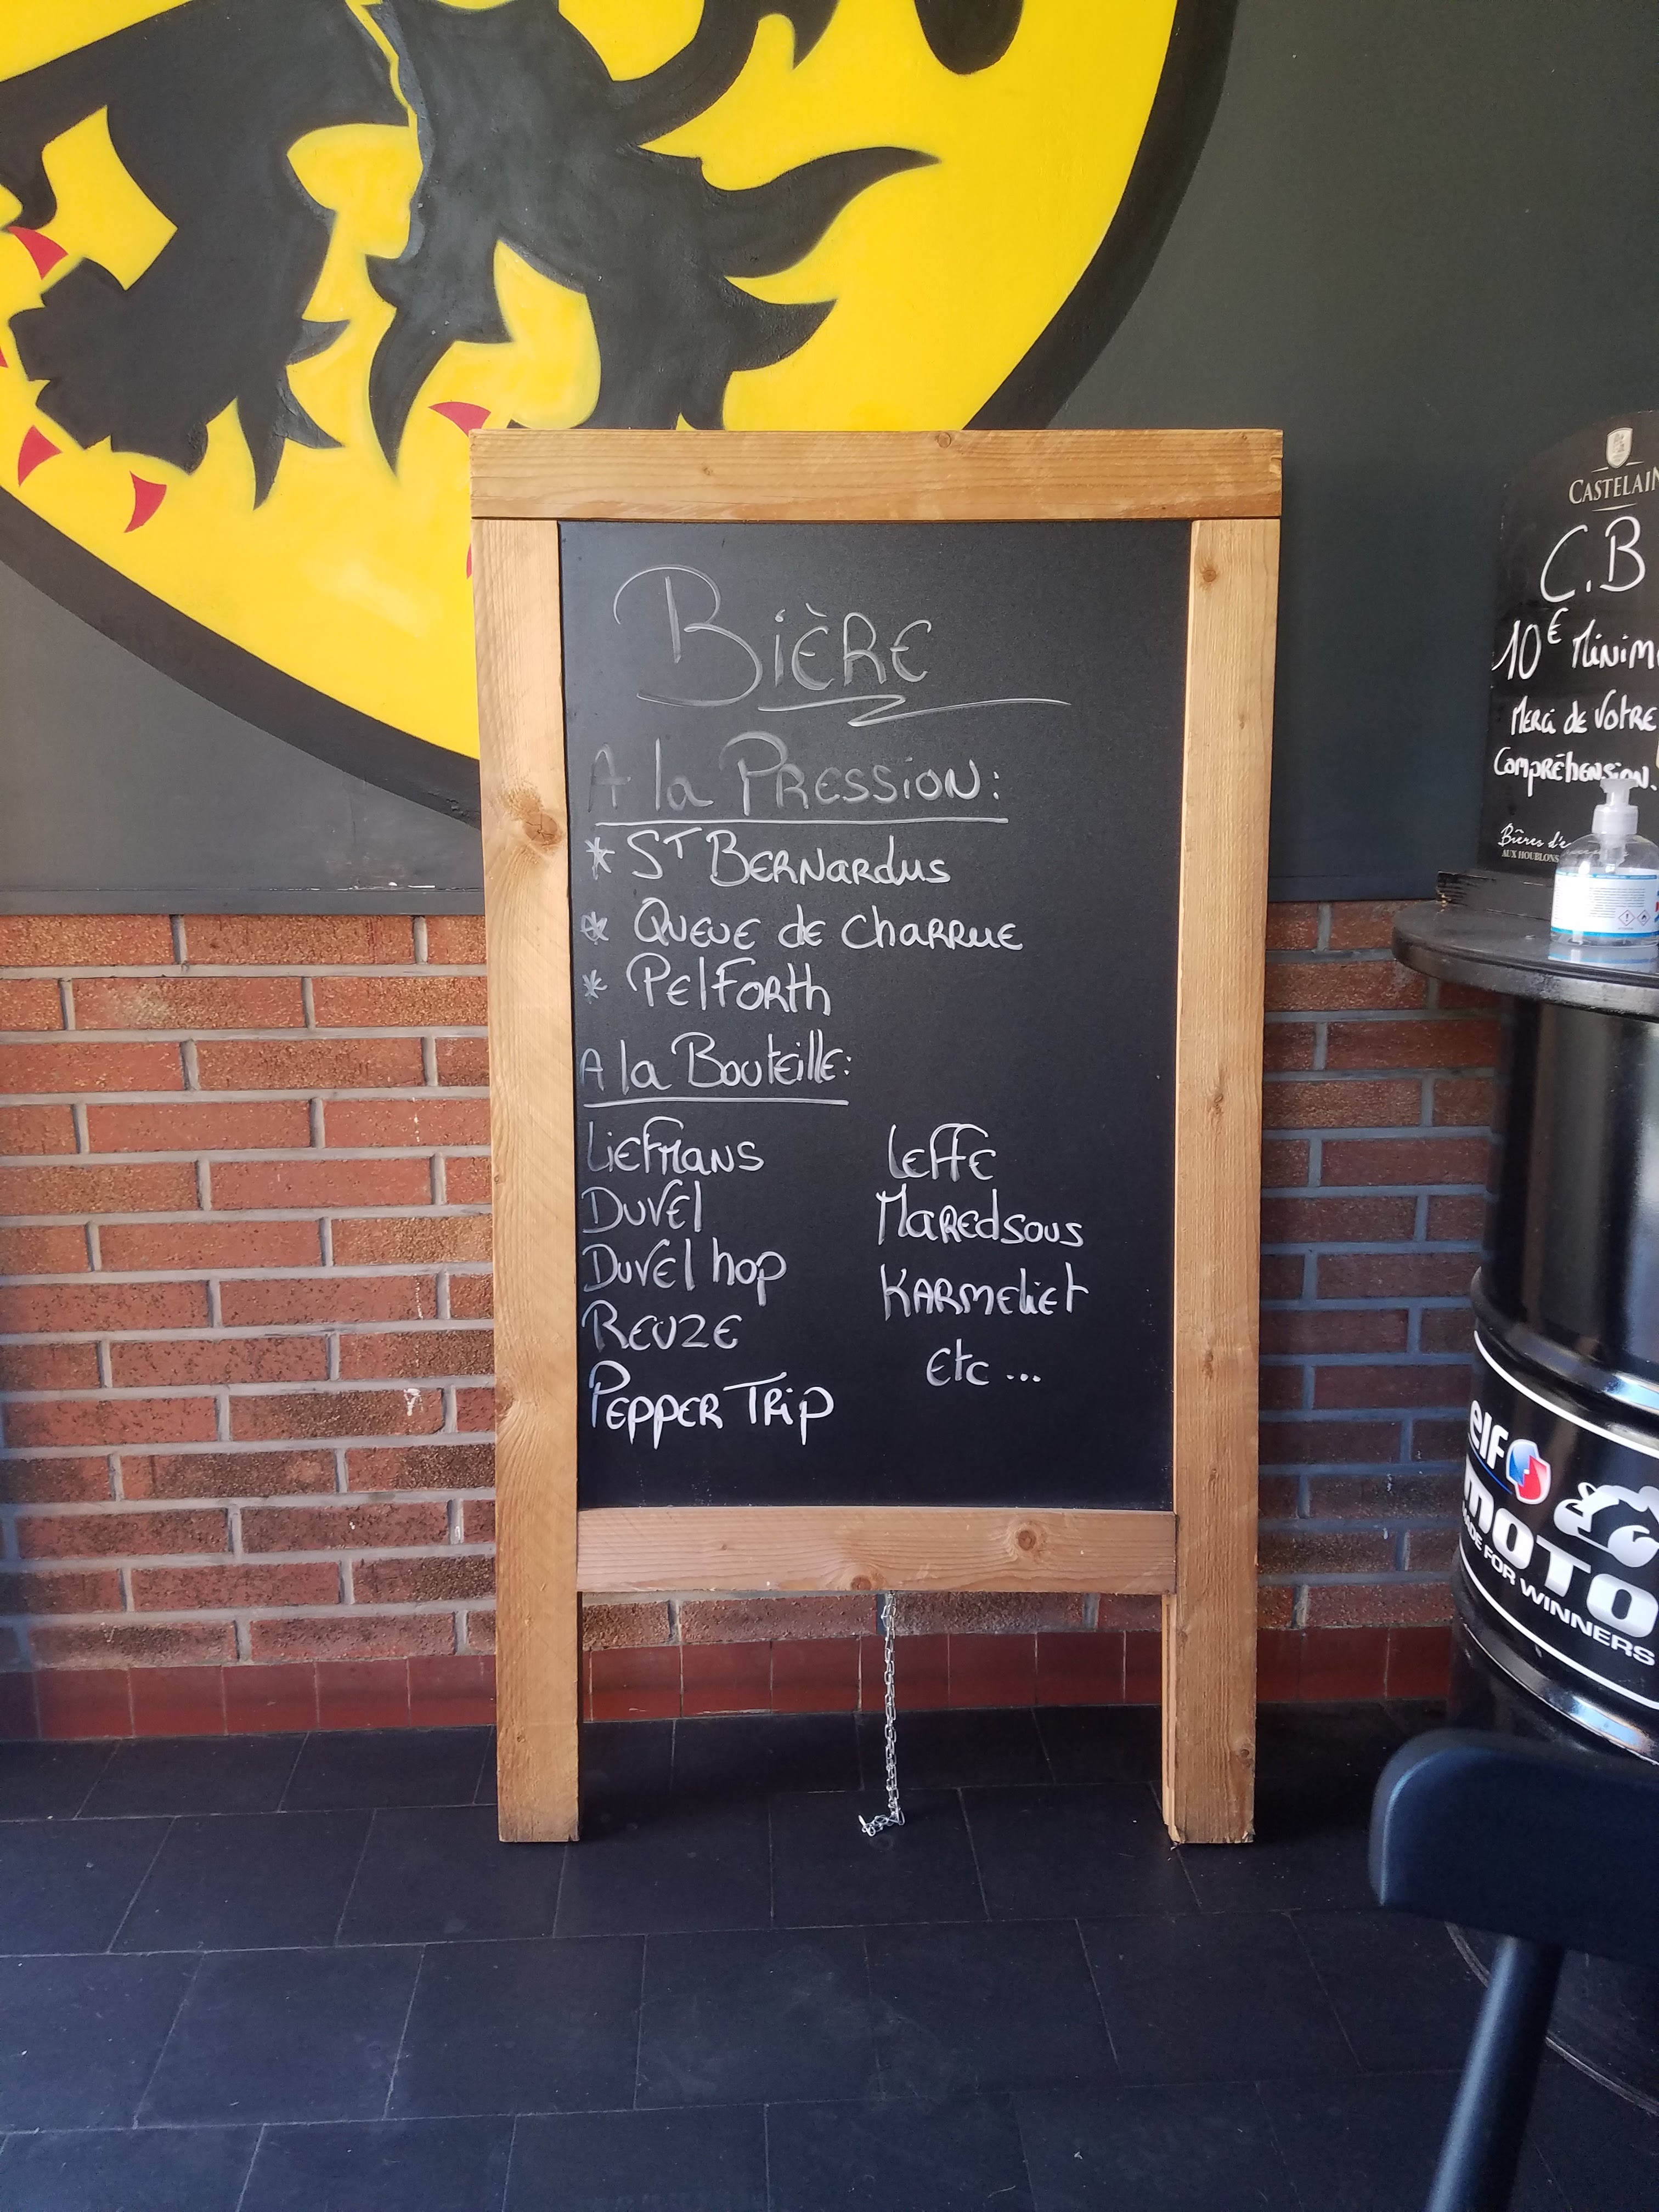 Bière
A la Pression:
* St Bernardus
* Queue de Charrue
* Pelforth
A la Bouteille:
Liefmans
Duvel
Duvel hop
Reuze
Pepper Trip
Leffe
Maredsous
Karmeliet
Etc ...
CASTELAIN
C.B
10€ Minim
Merci de Votre
Compréhension.
Bières d'
AUX HOUBLONS
elf
MOTO
MADE FOR WINNERS